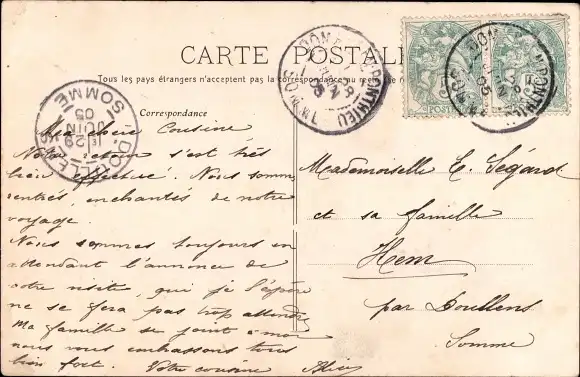 CARTE POSTALE
Tous les pays étrangers n'acceptent pas la correspondance au
Correspondance
Ma chère Cousine
Notre retour s'est très
bien effectué. Nous somm
rentrés, enchantés de notre
voyage.
Nous sommes toujours en
attendant l'annonce de
votre visite, qui je l'espère
ne se fera pas trop attendre
Ma famille se joint à moi
nous vous embrassons tous
bien fort. Votre cousine
Alice
Mademoiselle C. Ségard
et sa famille
Hem
par Doullens
Somme
DOULLENS
SOMME
29
JUIN
05
DOMART-EN-PONTHIEU
28
JUIN
05
DOMART-EN-PONTHIEU
05